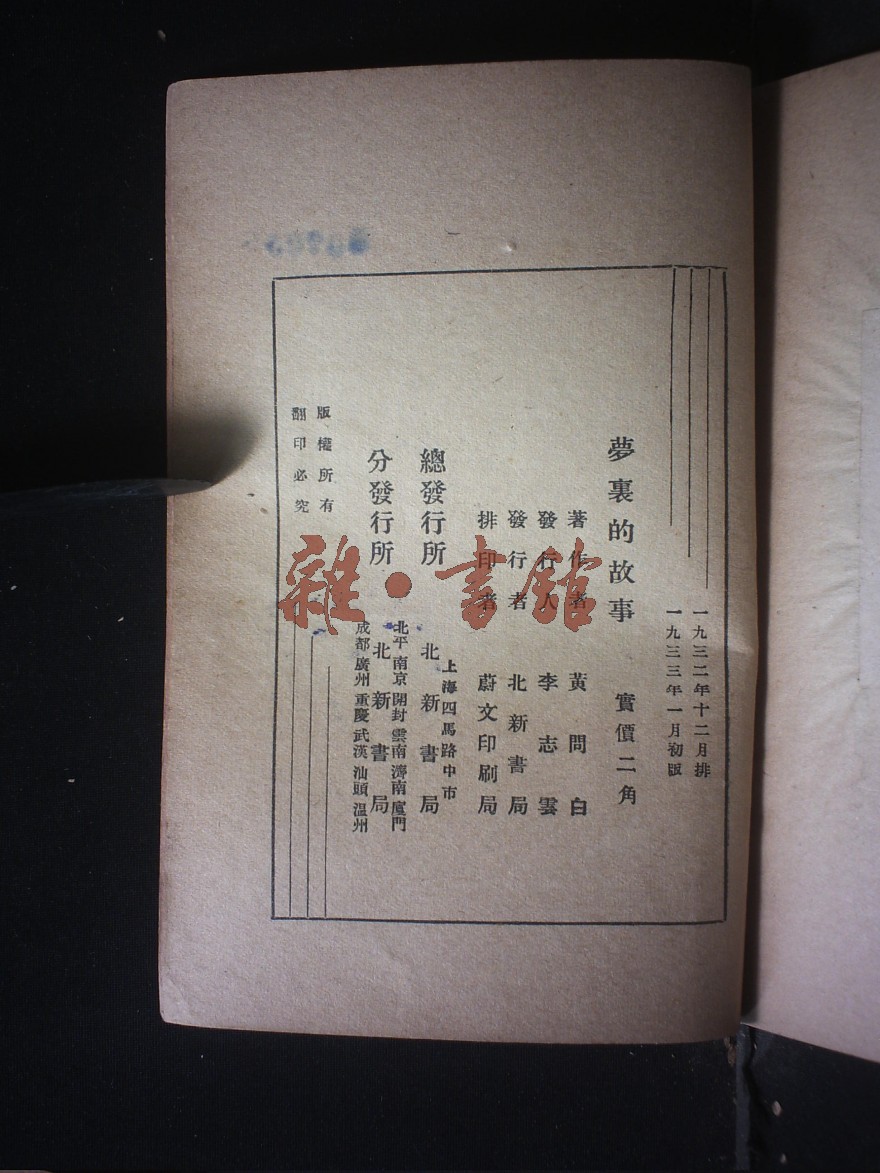 一九三二年十二月排
一九三三年一月初版
夢裏的故事　實價二角
著作者　黃問白
發行人　李志雲
發行者　北新書局
排印者　蔚文印刷局
總發行所　上海四馬路中市
北新書局
分發行所　北平南京開封雲南濟南廈門
北新書局
成都廣州重慶武漢汕頭溫州
版權所有
翻印必究
雜·書館